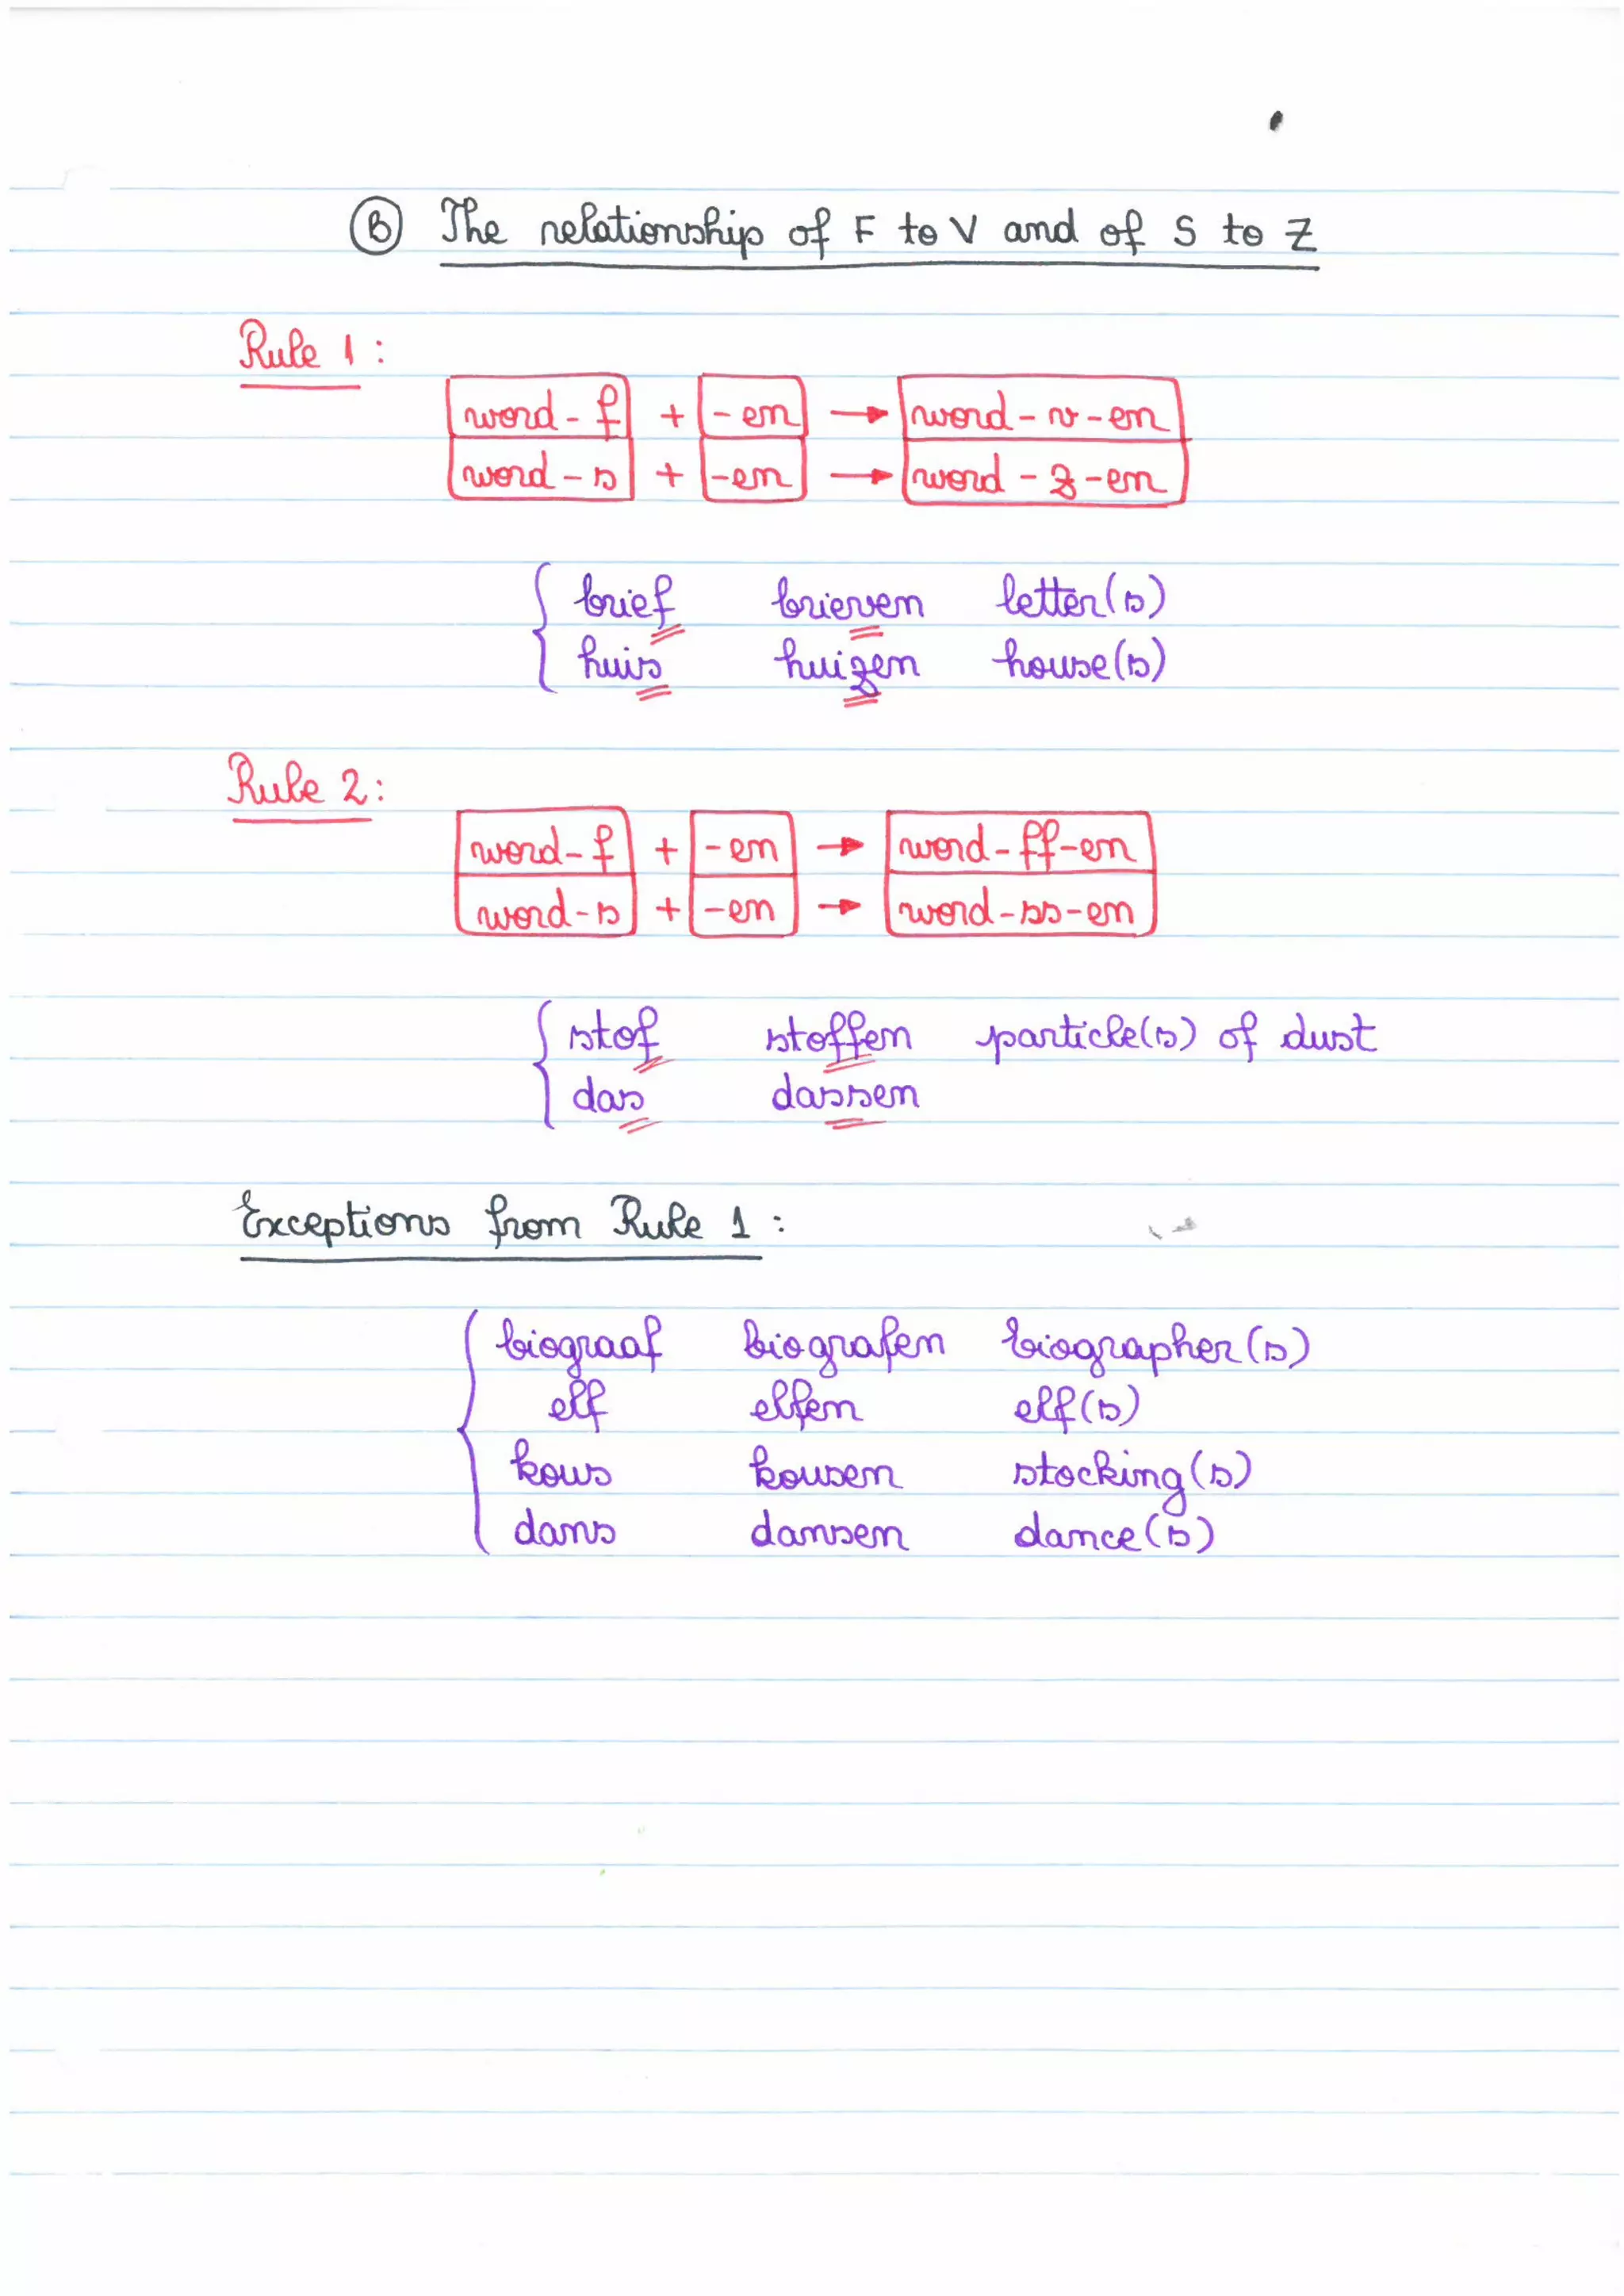 B The relationship of F to V and of S to Z
Rule 1 :
word - f + - en → word - v - en
word - s + -en → word - z - en
brief brieven letter(s)
huis huizen house(s)
Rule 2 :
word - f + - en → word - ff - en
word - s + -en → word - ss - en
stof stoffen particle(s) of dust
das dassen
Exceptions from Rule 1 :
biograaf biografen biographer(s)
elf elfen elf(s)
kous kousen stocking(s)
dans dansen dance(s)